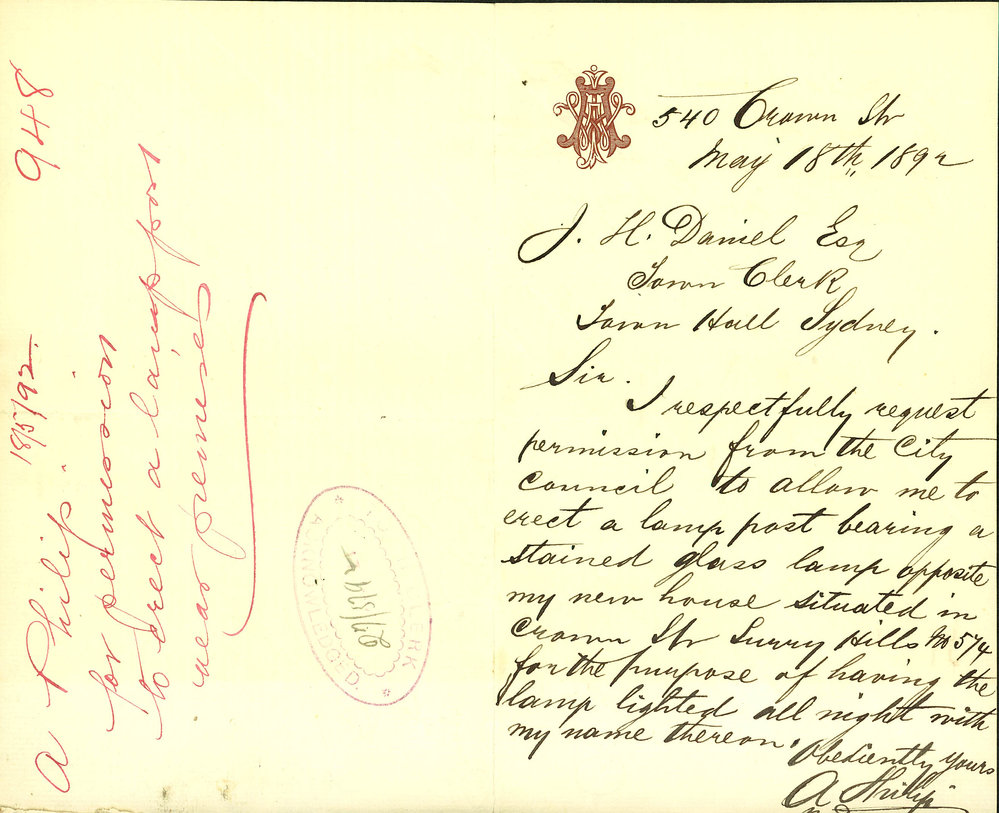 948
A Philip
18/5/92
for permission
to erect a lamp post
near premises
CLERK
ACKNOWLEDGED
540 Crown Str
May 18th, 1892
J. H. Daniel Esq
Town Clerk
Town Hall Sydney.
Sir.
I respectfully request
permission from the City
Council to allow me to
erect a lamp post bearing a
stained glass lamp opposite
my new house situated in
Crown Str Surry Hills No 574
for the purpose of having the
lamp lighted all night with
my name thereon.
Obediently yours
A Philip